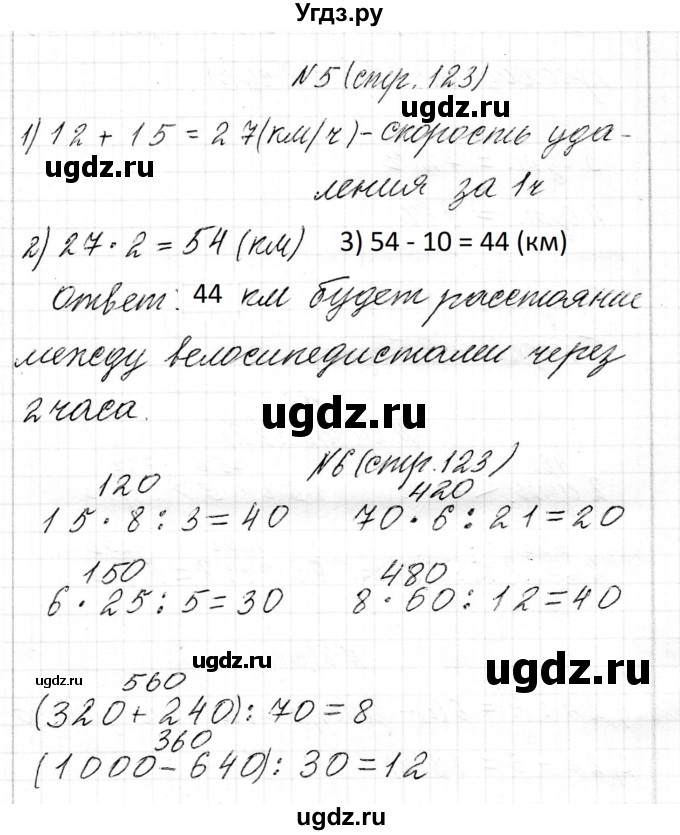 Угдз.ру
№5 (стр. 123)
ugdz.ru
1) 12 + 15 = 27 (км/ч) - скорость уда-
ugdz.ru
ления за 1ч
2) 27 · 2 = 54 (км) 3) 54 - 10 = 44 (км)
Ответ: 44 км будет расстояние
между велосипедистами через
2 часа.
ugdz.ru
№6 (стр. 123)
120 420
15 · 8 : 3 = 40 70 · 6 : 21 = 20
150 480
6 · 25 : 5 = 30 8 · 60 : 12 = 40
ugdz.ru ugdz.ru ugdz.ru
560
(320 + 240) : 70 = 8
360
(1000 - 640) : 30 = 12
ugdz.ru ugdz.ru
Угдз.ру